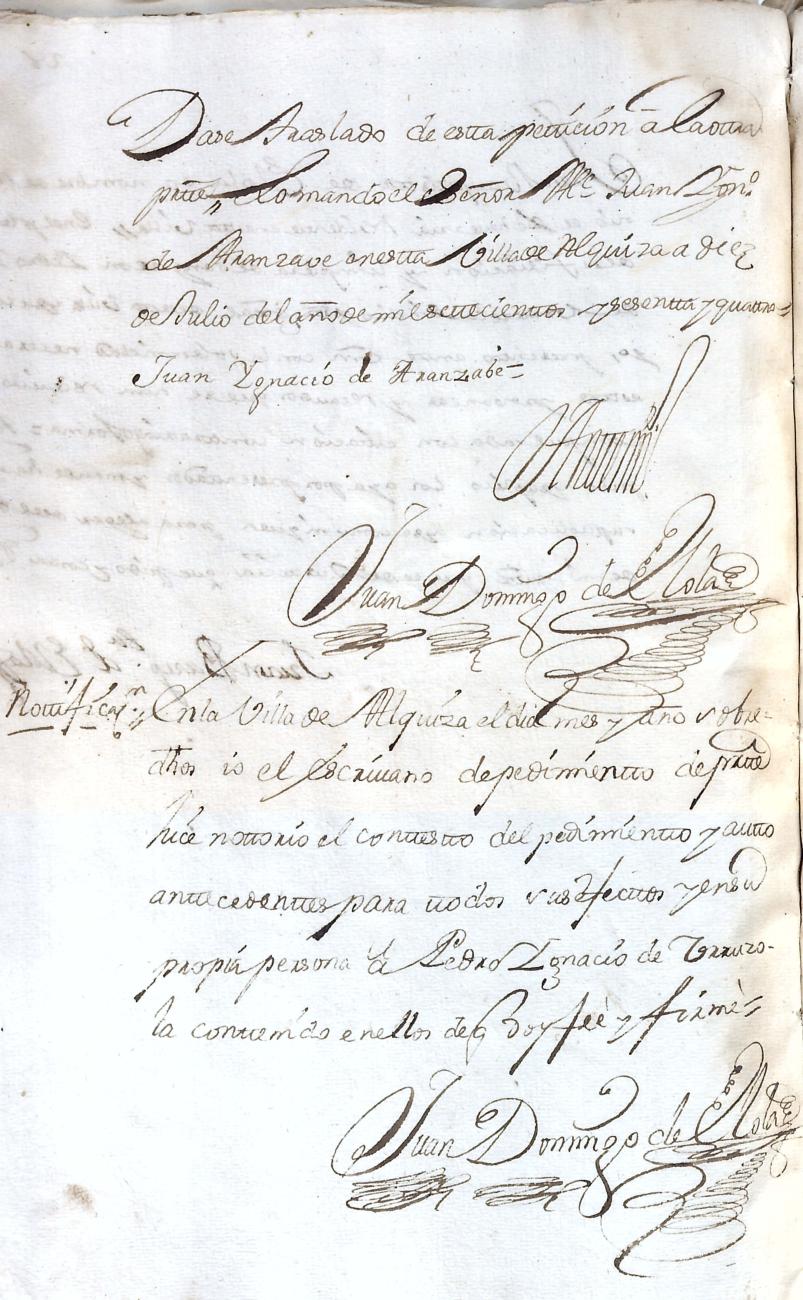 Dase traslado de estta pettición â la ottra
prtte, y lo mando el Señor Alle Juan Ygno
de Aranzave en estta Villa de Alquiza a diez
de Julio del año de mil settecienttos y sesentta y quattro=
Juan Ygnacio de Aranzabe=
Antte mi
Juan Domingo de
Nottificazn
En la Villa de Alquiza el dia mes y año sobre=
dhos io el escrivano de pedimientto de prtte
hice nottorio el conttestto del pedimientto y autto
anttecedenttes para ttodos sus efecttos y en su
propia persona â Pedro Ygnacio de Yrrazo-
la conttenido en ellos de q Doy feè y firmè=
Juan Domingo de